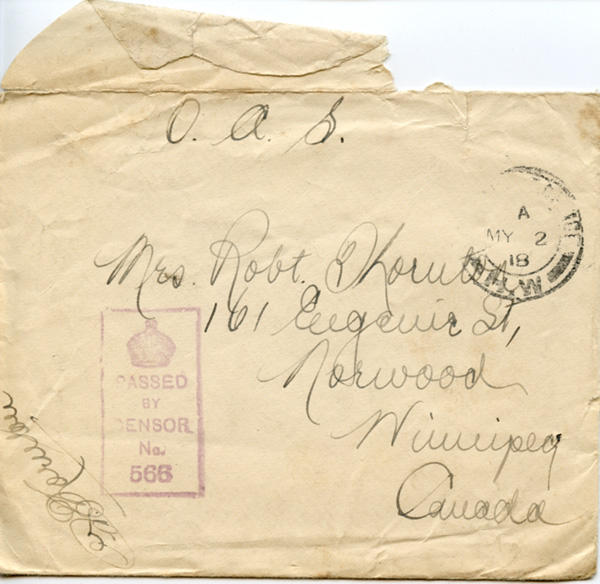 O. A. S.
A
MY 2
18
Mrs. Robt. Thornton
161 Eugenie St,
Norwood
Winnipeg
Canada
PASSED
BY
CENSOR
No.
566